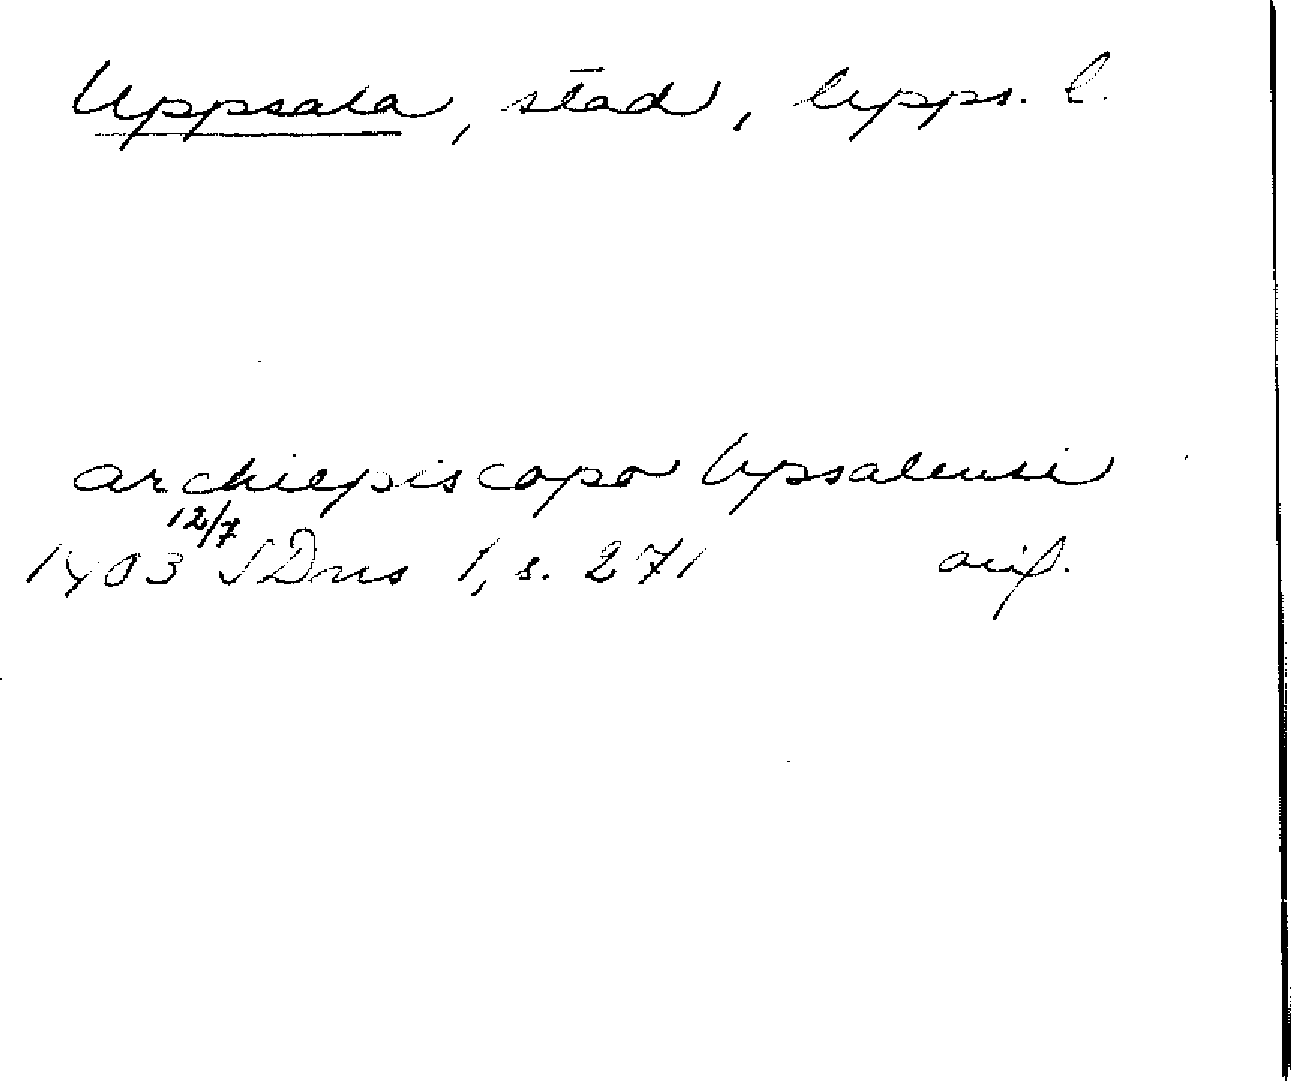 Uppsala, stad, Upps. l.
archiepiscopo Upsalensi
1403 12/7 SDns 1, s. 271 orig.